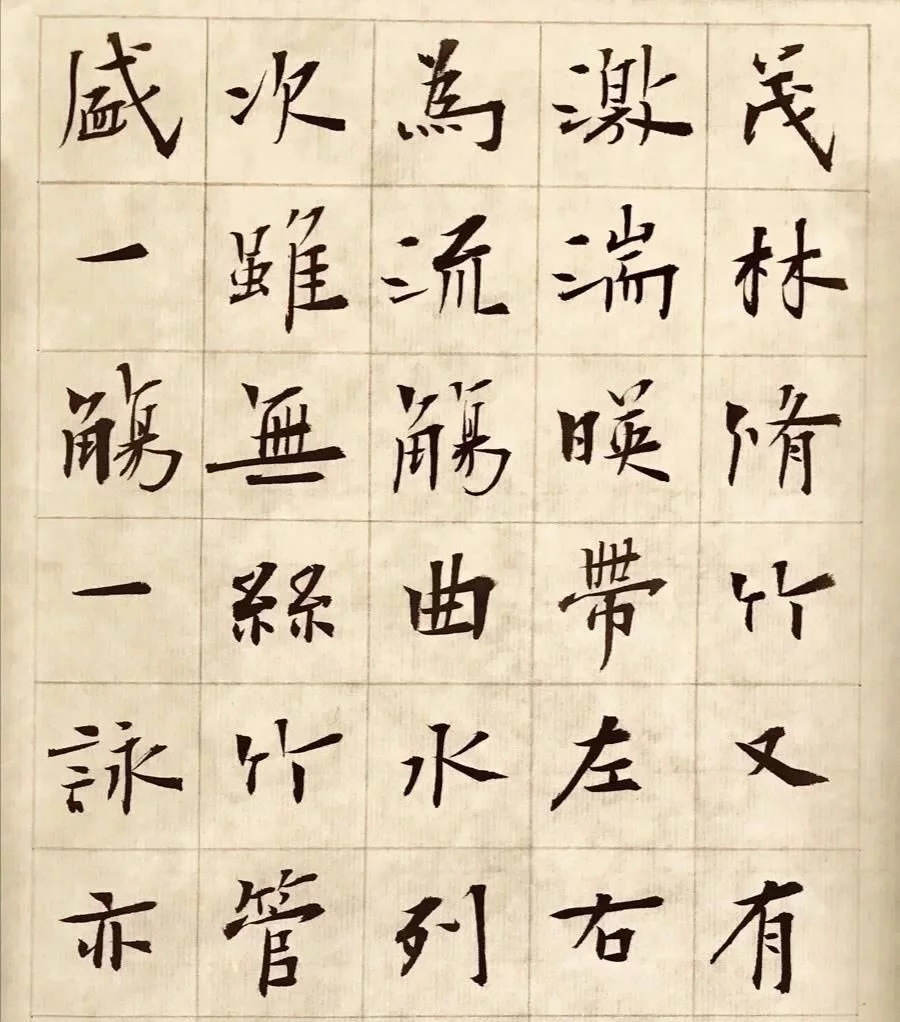 茂林脩竹又有
激湍暎帶左右
為流觴曲水列
次雖無絲竹管
盛一觴一詠亦